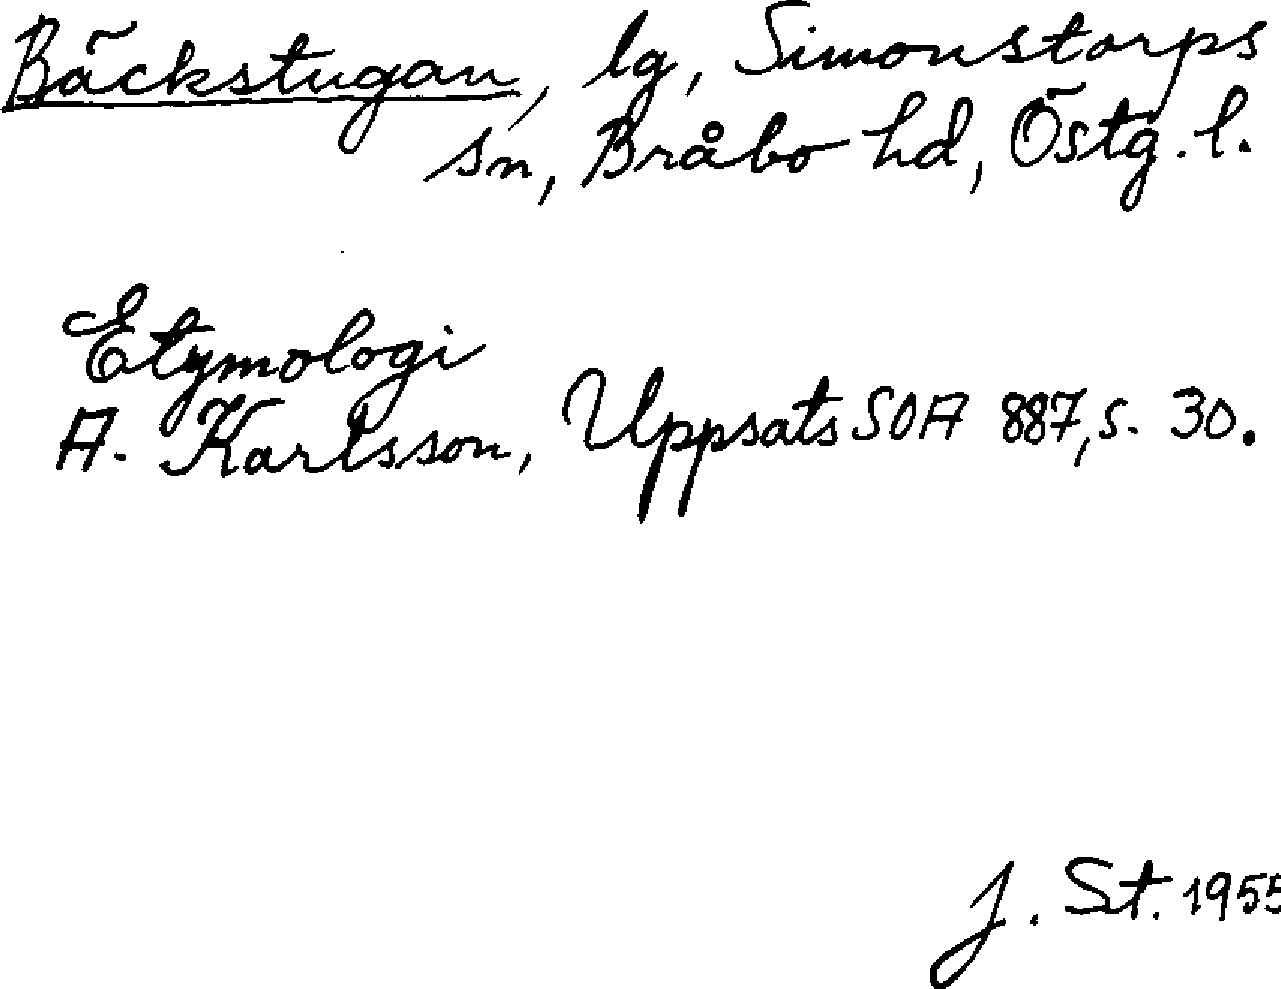 Bäckstugan, lg, Simonstorps
sn, Bråbo hd, Östg. l.
Etymologi
A. Karlsson, Uppsats SOA 887, s. 30.
J. St. 1955